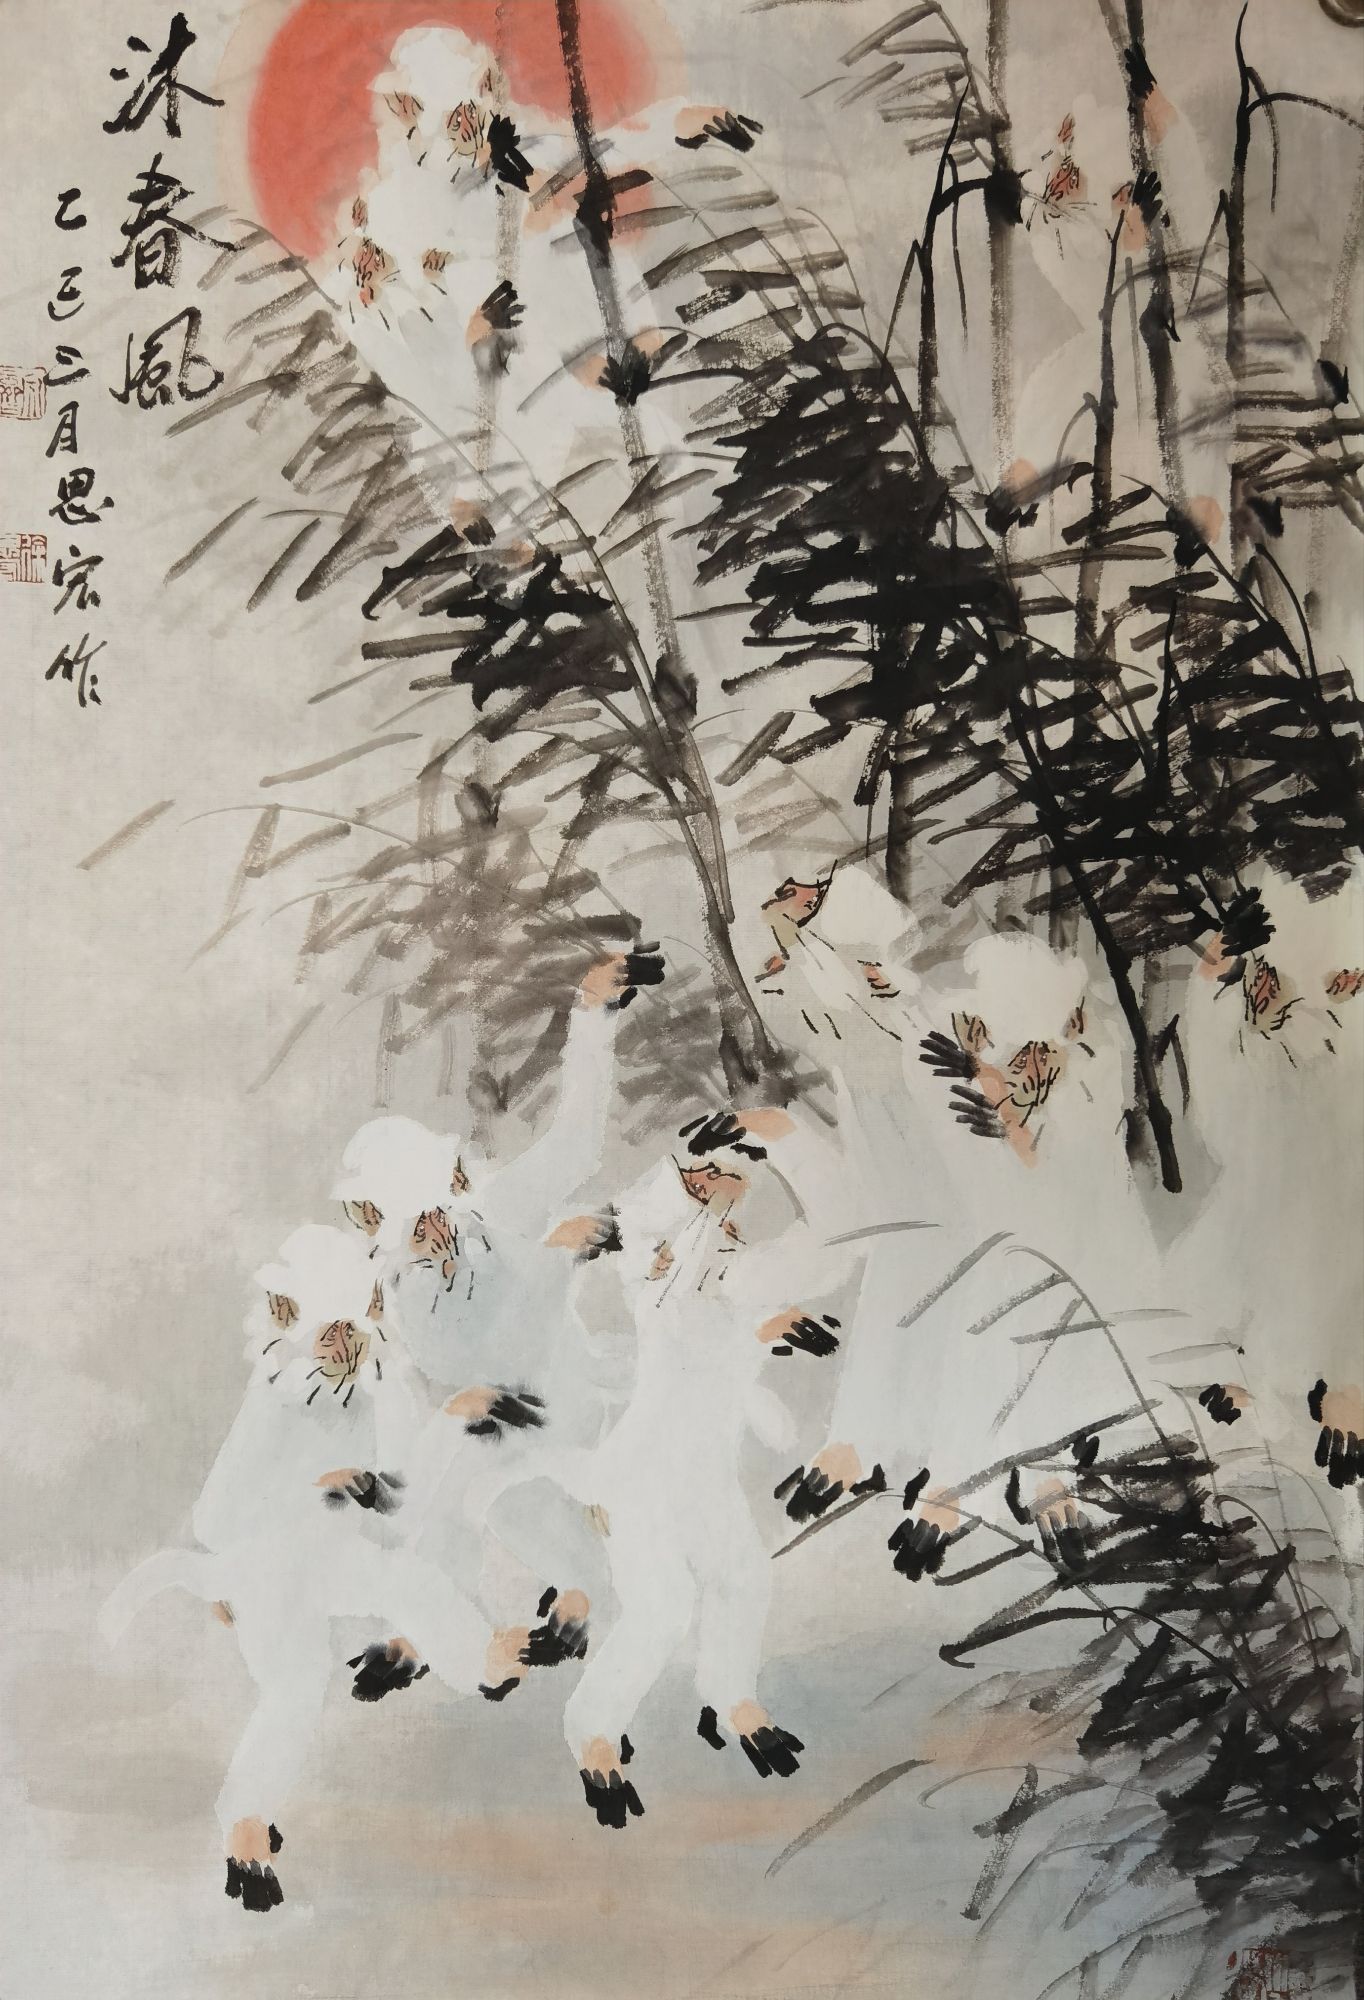 沐春风
乙巳三月思宏作